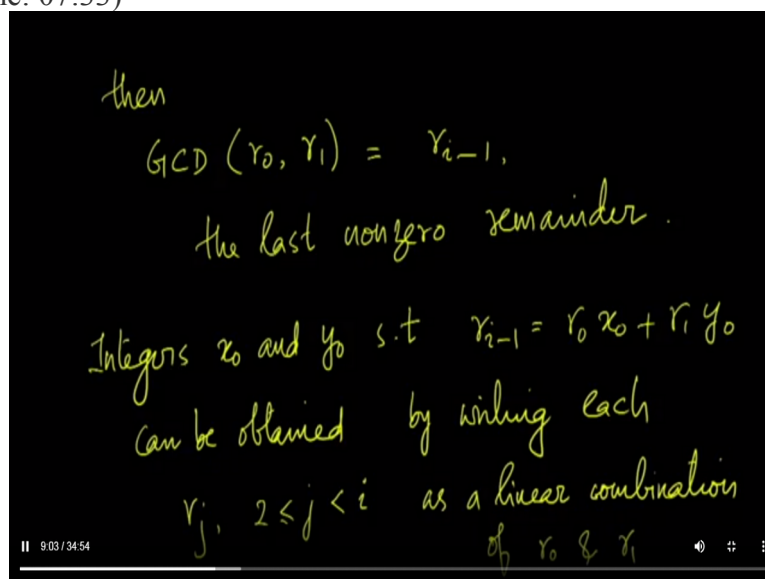 then
GCD (r₀, r₁) = rᵢ₋₁,
the last nonzero remainder.
Integers x₀ and y₀ s.t rᵢ₋₁ = r₀ x₀ + r₁ y₀
can be obtained by writing each
rⱼ, 2 ≤ j < i as a linear combination
of r₀ & r₁
9:03 / 34:54